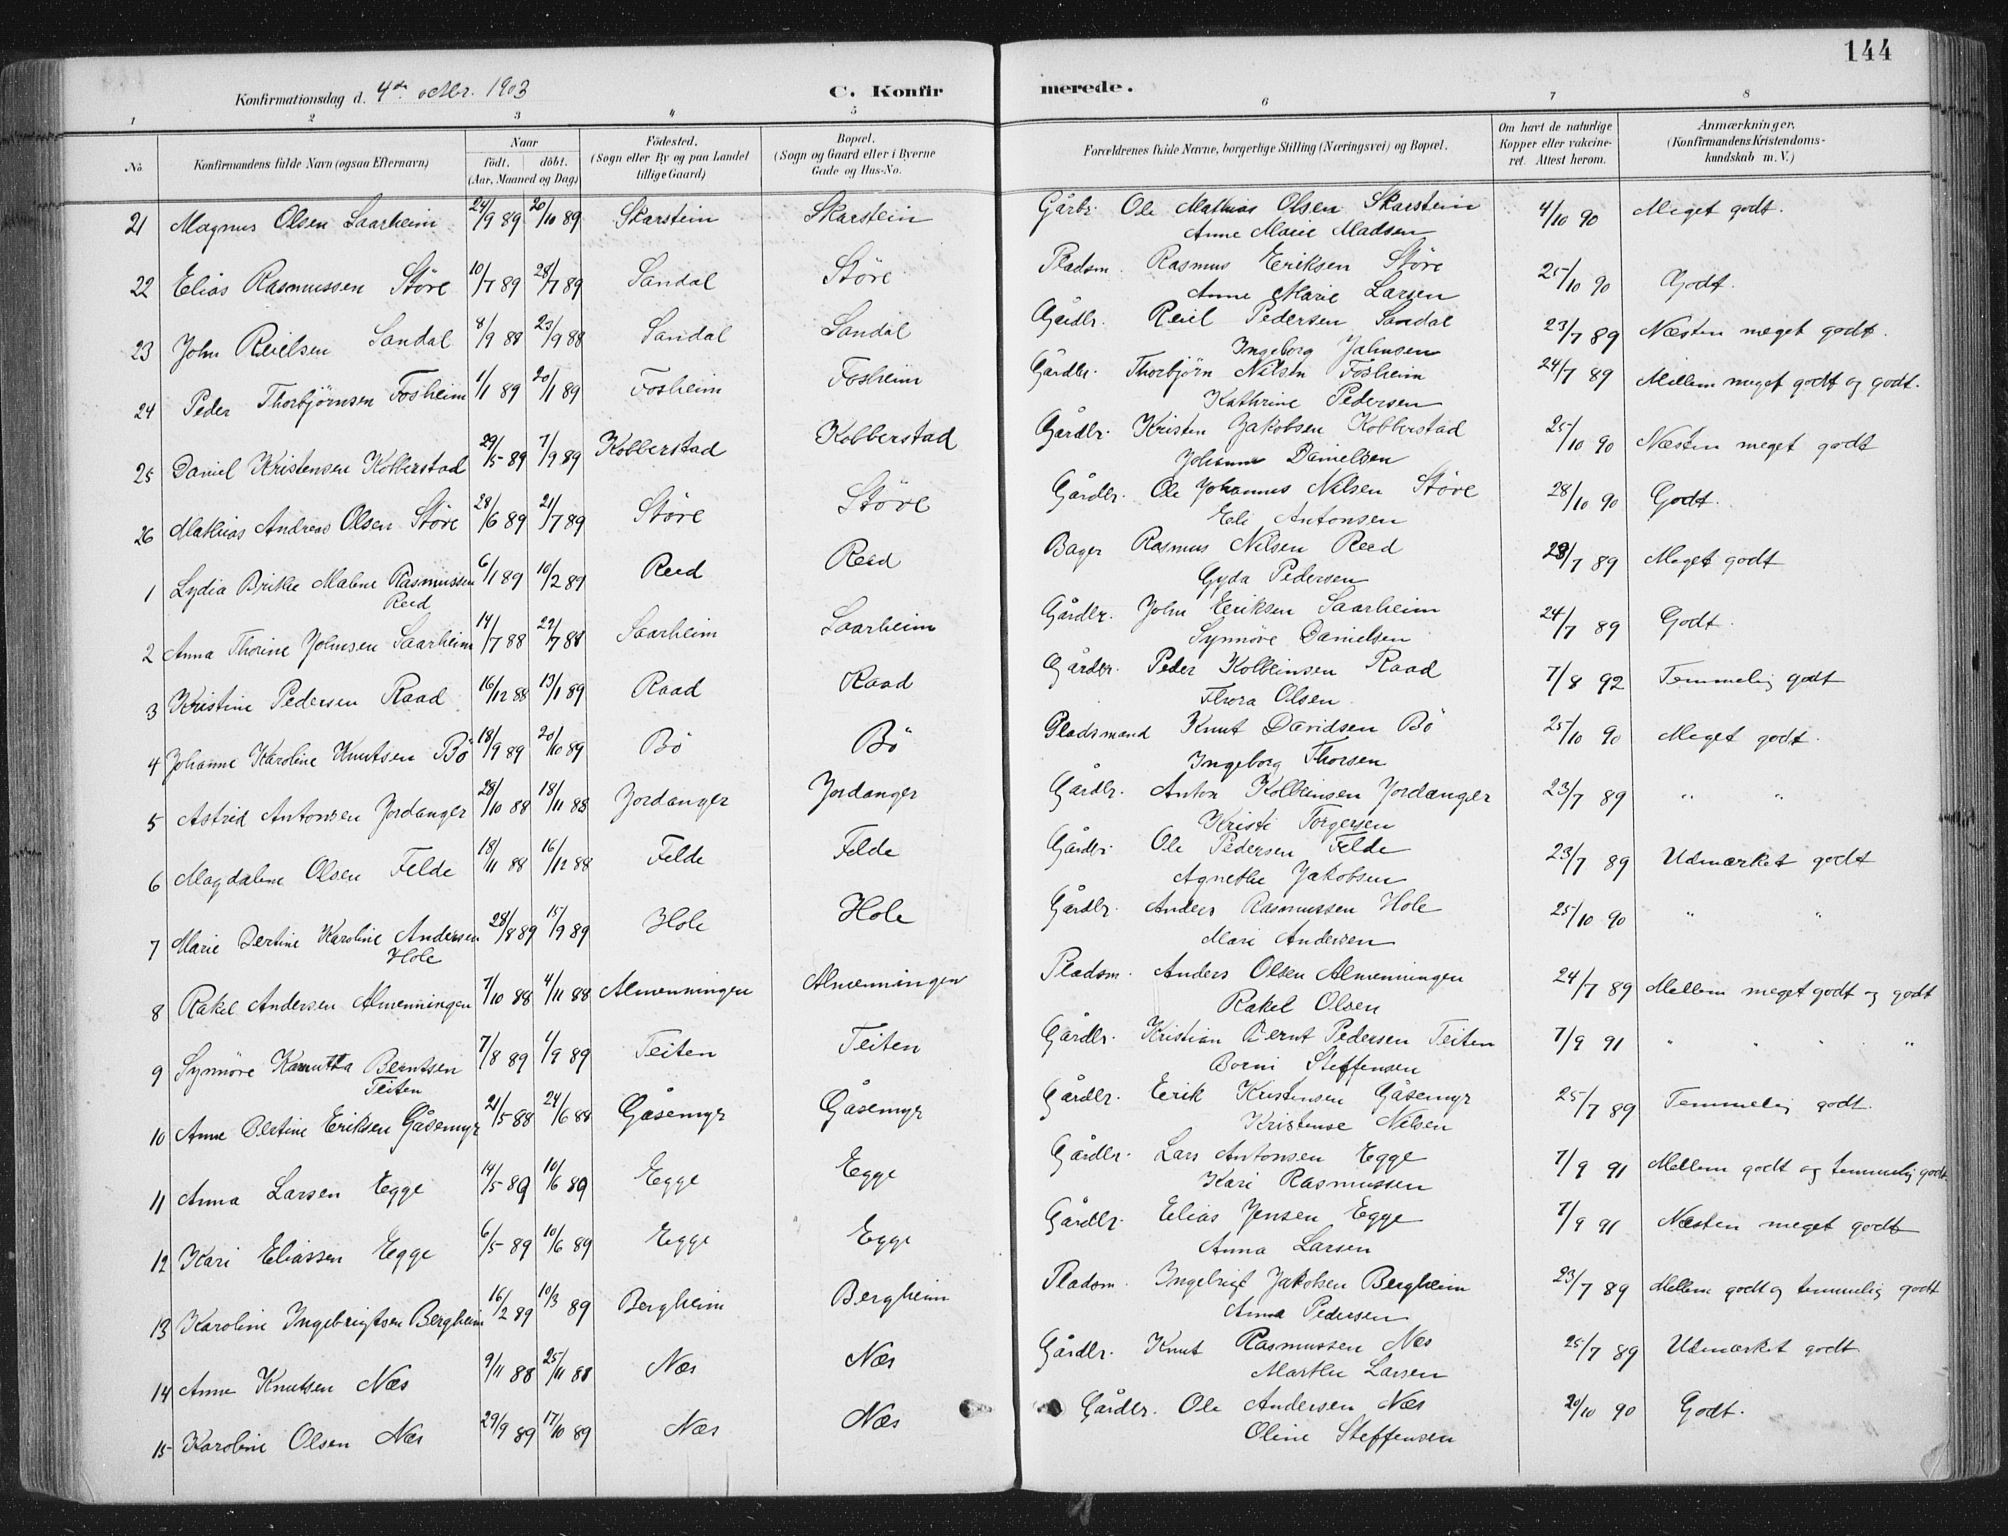 144
Konfirmationsdag d. 4de octbr. 1903 C. Konfirmerede.
1 2 3 4 5 6 7 8
No Konfirmandens fulde Navn (ogsaa Efternavn) Naar födt. döbt. (Aar, Maaned og Dag) Födested. (Sogn eller By og paa Landet tillige Gaard) Bopæl. (Sogn og Gaard eller i Byerne Gade og Hus-No. Forældrenes fulde Navne, borgerlige Stilling (Næringsvei) og Bopæl. Om havt de naturlige Kopper eller vakcineret. Attest herom. Anmærkninger. (Konfirmandens Kristendomskundskab m. V.)
21 Magnus Olsen Saarheim 24/9 89 20/10 89 Skarstein Skarstein Gårbr. Ole Mathias Olsen Skarstein 4/10 90 Meget godt.
Anne Marie Madsen
22 Elias Rasmussen Störe 10/7 89 28/7 89 Sandal Störe Pladsm. Rasmus Eriksen Störe 25/10 90 Godt.
Anne Marie Larsen
23 John Reielsen Sandal 8/9 88 23/9 88 Sandal Sandal Gårdbr. Reiel Pedersen Sandal 23/7 89 Næsten meget godt.
Ingeborg Johnsen
24 Peder Thorbjörnsen Fosheim 1/1 89 20/1 89 Fosheim Fosheim Gårdbr. Thorbjörn Nilsen Fosheim 24/7 89 Mellem meget godt og godt.
Kathrine Pedersen
25 Daniel Kristensen Kobberstad 29/5 89 7/9 89 Kobberstad Kobberstad Gårdbr. Kristen Jakobsen Kobberstad 25/10 90 Næsten meget godt
Johanne Danielsen
26 Mathias Andreas Olsen Störe 28/6 89 21/7 89 Störe Störe Gårdbr. Ole Johannes Nilsen Störe 28/10 90 Godt.
Eli Antonsen
1 Lydia Brikte Malene Rasmussen 6/1 89 10/2 89 Reed Reed Bager Rasmus Nilsen Reed 23/7 89 Meget godt
Reed Gyda Pedersen
2 Anna Thorine Johnsen Saarheim 14/7 88 22/7 88 Saarheim Saarheim Gårdbr. John Eriksen Saarheim 24/7 89 Godt.
Synnöve Danielsen
3 Kristine Pedersen Raad 16/12 88 13/1 89 Raad Raad Gårdbr. Peder Kolbeinsen Raad 7/8 92 Temmelig godt
Thora Olsen
4 Johanne Karoline Knutsen Bö 18/9 89 20/10 89 Bö Bö Pladsmand Knut Davidsen Bö 25/10 90 Meget godt.
Ingeborg Thorsen
5 Astrid Antonsen Jordanger 28/10 88 18/11 88 Jordanger Jordanger Gårdbr. Anton Kolbeinsen Jordanger 23/7 89 " "
Kristi Torgersen
6 Magdalene Olsen Felde 18/11 88 16/12 88 Felde Felde Gårdbr. Ole Pedersen Felde 23/7 89 Udmærket godt
Agnethe Jakobsen
7 Marie Bertine Karoline Andersen 28/8 89 15/9 89 Hole Hole Gårdbr. Anders Rasmussen Hole 25/10 90 " "
Hole Mari Andersen
8 Rakel Andersen Almenningen 7/10 88 4/11 88 Almenningen Almenningen Pladsm. Anders Olsen Almenningen 24/7 89 Mellem meget godt og godt
Rakel Olsen
9 Synnöve Berntsen 7/8 89 1/9 89 Teiten Teiten Gårdbr. Kristian Bernt Pedersen Teiten 7/9 91 " " " "
Teiten Borni Steffensen
10 Anne Bertine Eriksen Gåsemyr 21/5 88 24/6 88 Gåsemyr Gåsemyr Gårdbr. Erik Kristensen Gåsemyr 25/7 89 Temmelig godt.
Kristense Nilsen
11 Anna Larsen Egge 14/5 89 10/6 89 Egge Egge Gårdbr. Lars Antonsen Egge 7/9 91 Mellem godt og temmelig godt
Kari Rasmussen
12 Kari Eliassen Egge 6/5 89 10/6 89 Egge Egge Gårdbr. Elias Jensen Egge 7/9 91 Næsten meget godt
Anna Larsen
13 Karoline Ingebrigtsen Bergheim 16/2 89 10/3 89 Bergheim Bergheim Pladsm. Ingebrigt Jakobsen Bergheim 23/7 89 Mellem godt og temmelig godt
Anna Pedersen
14 Anne Knutsen Næs 9/11 88 25/11 88 Næs Næs Gårdbr. Knut Rasmussen Næs 25/7 89 Udmærket godt
Marthe Larsen
15 Karoline Olsen Næs 29/9 89 17/10 89 Næs Næs Gårdbr. Ole Andersen Næs 20/10 90 Godt.
Oline Steffensen